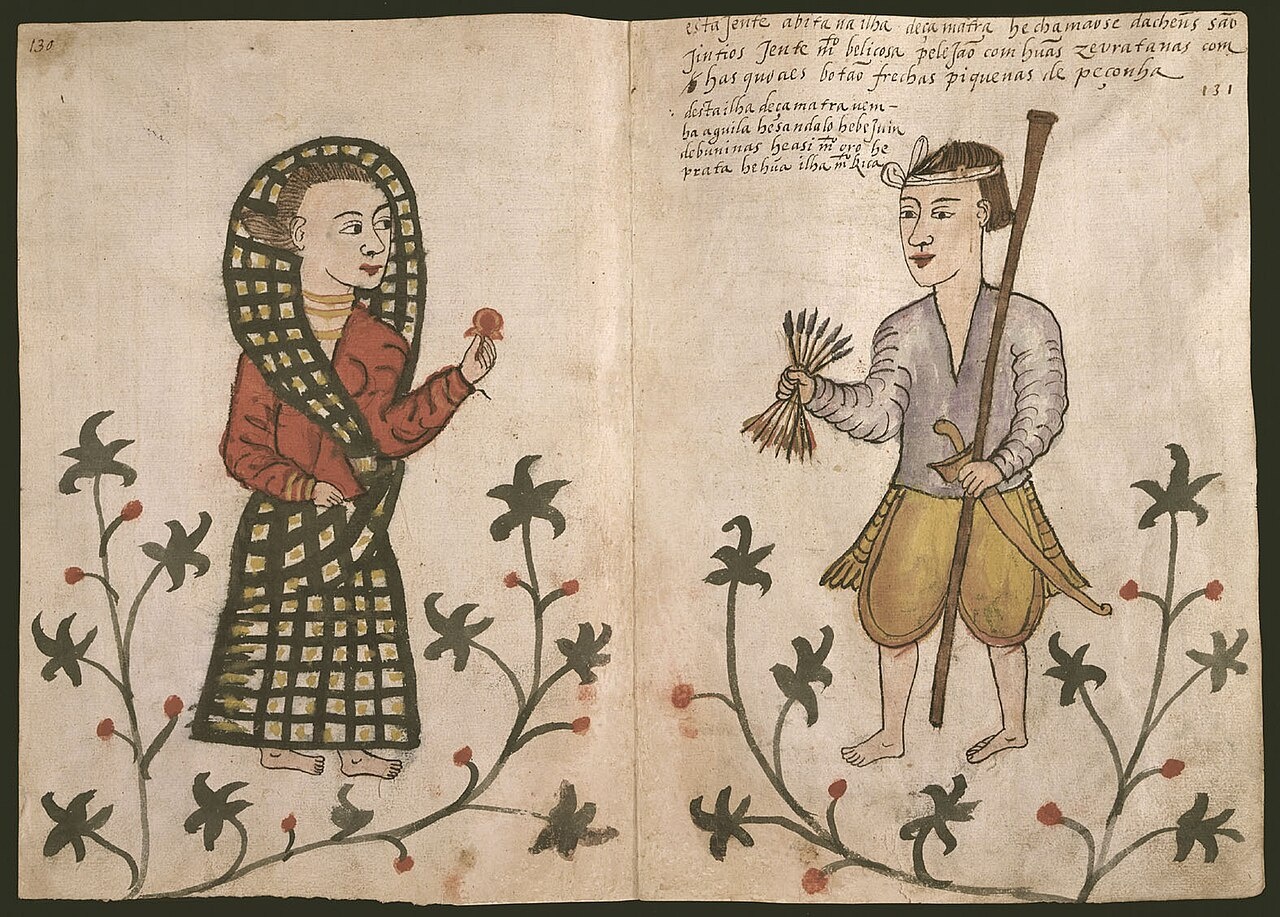 130
esta Jente abita na ilha deçamatra he chamaose dachens são
Jintios Jente mto belicosa peleJão com huãs zevratanas com
has quoaes botão frechas piquenas de peçonha
131
desta ilha deçamatra vem-
ha aguila he sandalo he beJuin
debuninas he asi mto oro he
prata he hũa ilha mto Rica